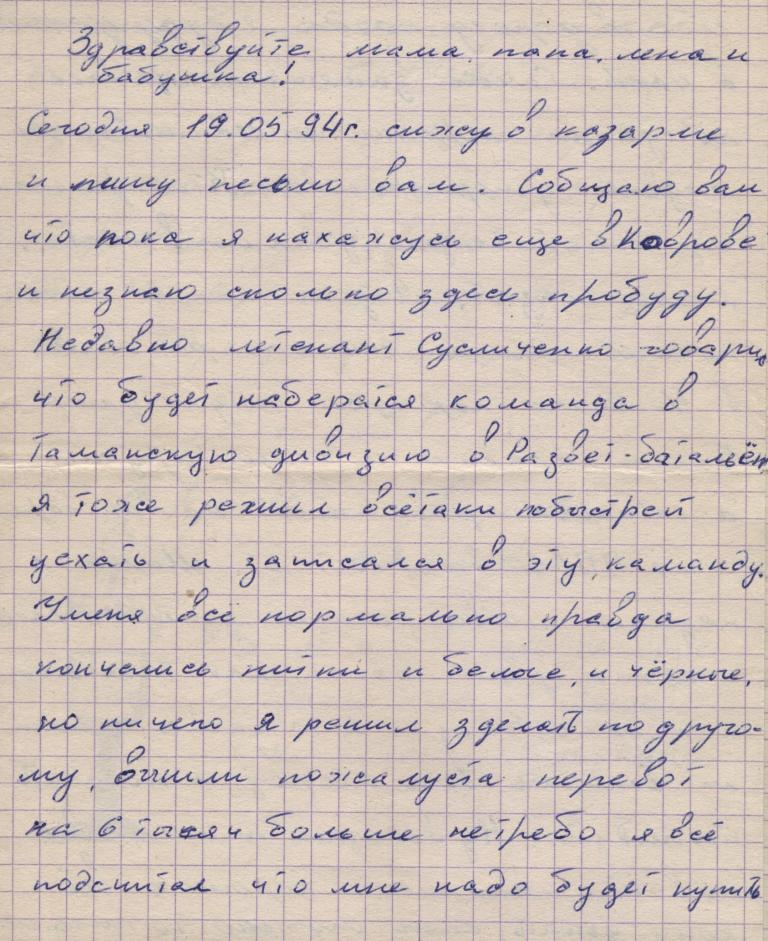 Здравствуйте мама, папа, лена и
бабушка!
Сегодня 19.05.94г. сижу в казарме
и пишу песьмо вам. Собщаю вам
что пока я нахажусь еще в Коврове
и незнаю сколько здесь пробуду.
Недавно летенант Сусличенко говорил
что будет набератся команда в
Таманскую дивизию в Развет-батальён,
я тоже решил всётаки побыстрей
уехать и записался в эту каманду.
Уменя всё нормально правда
кончелись нитки и белые, и чёрные,
но ничего я решил зделать по друго-
му, вышли пожалуста перевот
на 6 тысяч больше нетребо я всё
подсчитал что мне надо будет купить